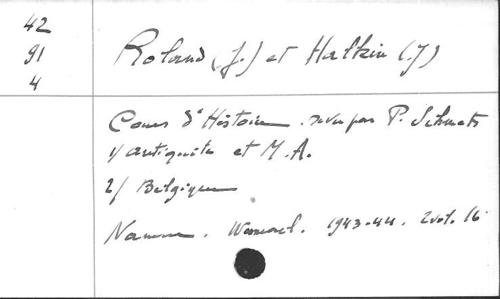 42
91
4
Roland (J.) et Halkin (J)
Cours d'Histoire. revu par P. Schmets
1/ antiquité et M.A.
2/ Belgique
Namur. Wesmael. 1943-44. 2 vol. 16